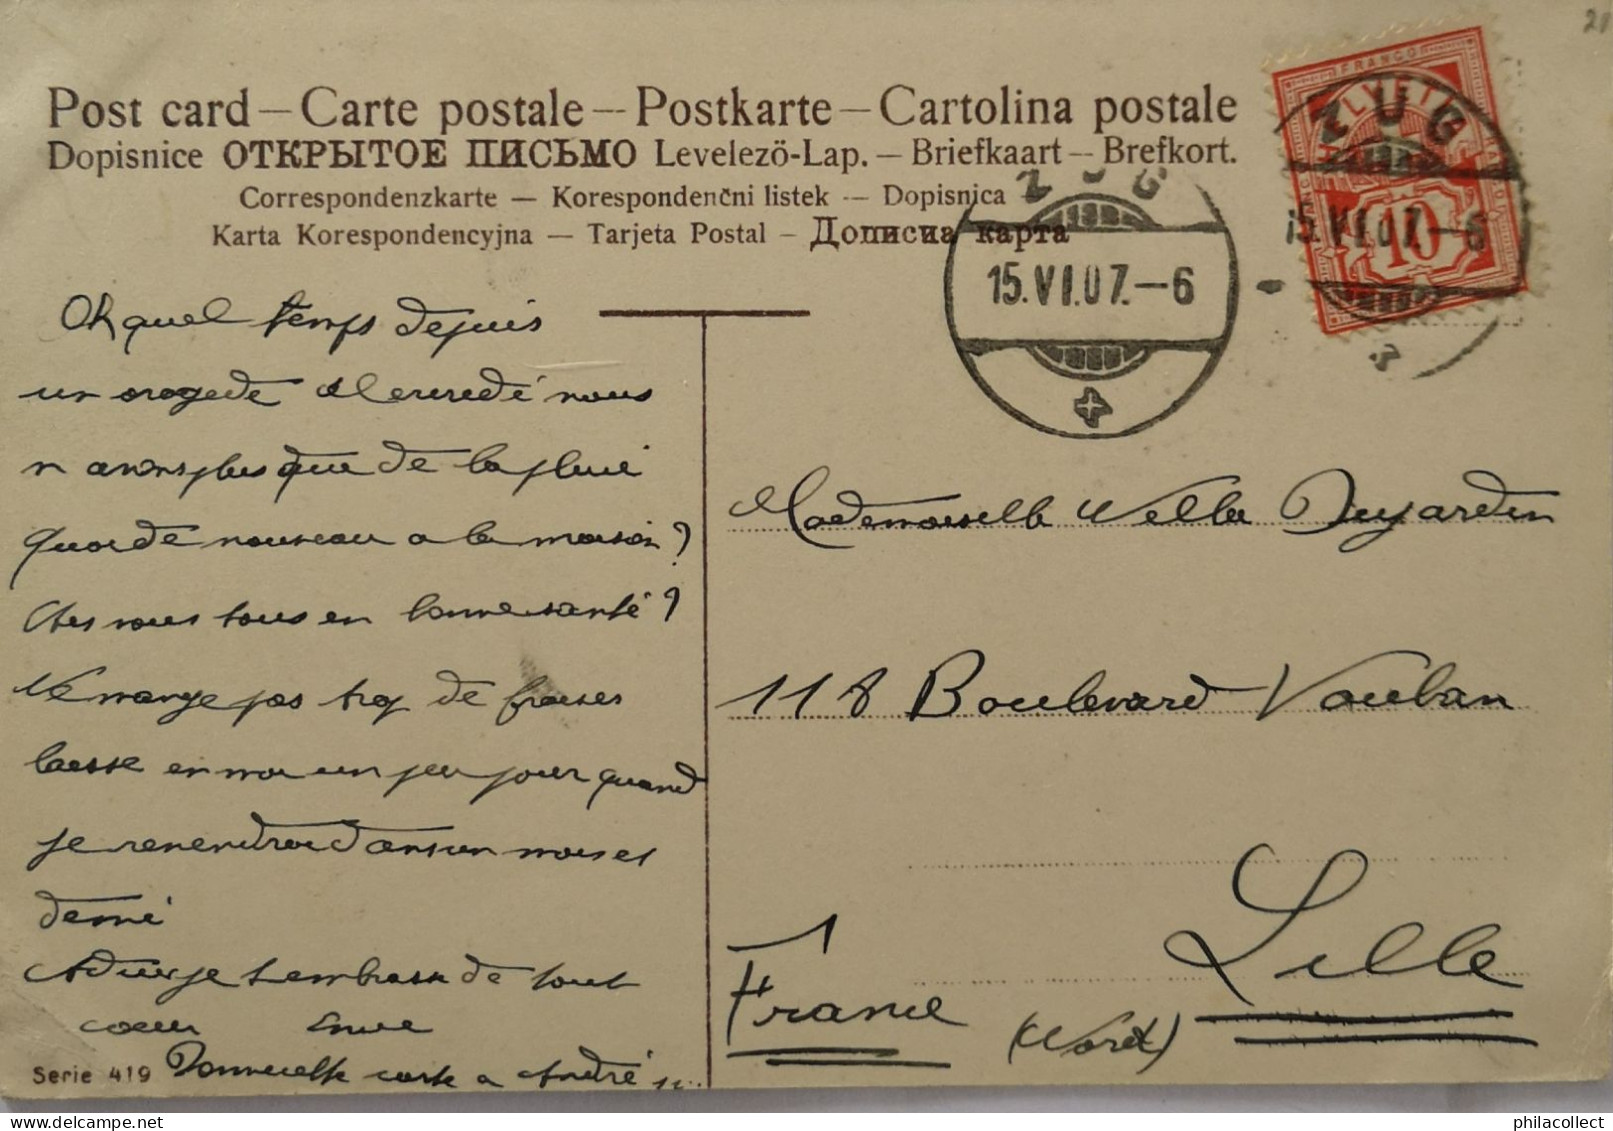 Post card — Carte postale — Postkarte — Cartolina postale
Dopisnice ОТКРЫТОЕ ПИСЬМО Levelező-Lap. — Briefkaart — Brefkort.
Correspondenzkarte — Korespondenčni listek — Dopisnica
Karta Korespondencyjna — Tarjeta Postal — Дописна карта
FRANCO
HELVETIA
10
ZUG
15.VI.07.–6
ZUG
15.VI.07.–6
Oh quel temps depuis
un
nous
n'avons plus que de la pluie
quoi de nouveau a la maison?
Etes vous tous en bonne santé?
Ne mange pas trop de fraises
laisse en moi un peu pour quand
je reviendrai dans un mois et
demi
Adieu je t'embrasse de tout
coeur
carte a André
Mademoiselle Dujardin
118 Boulevard Vauban
Lille
France (Nord)
Serie 419
philacollect